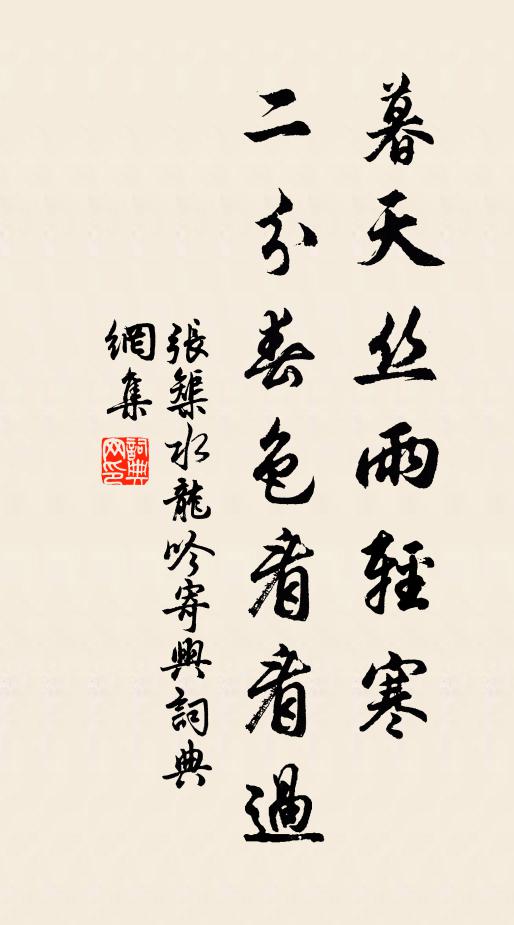 暮天丝雨輕寒
二分春色看看過
張榘水龍吟寄興詞典
網集
詞典
网印